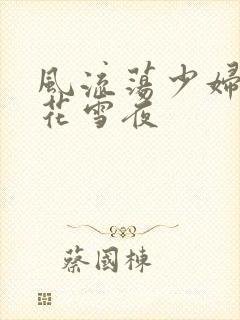 風流蕩少婦
花雪夜
蔡國棟